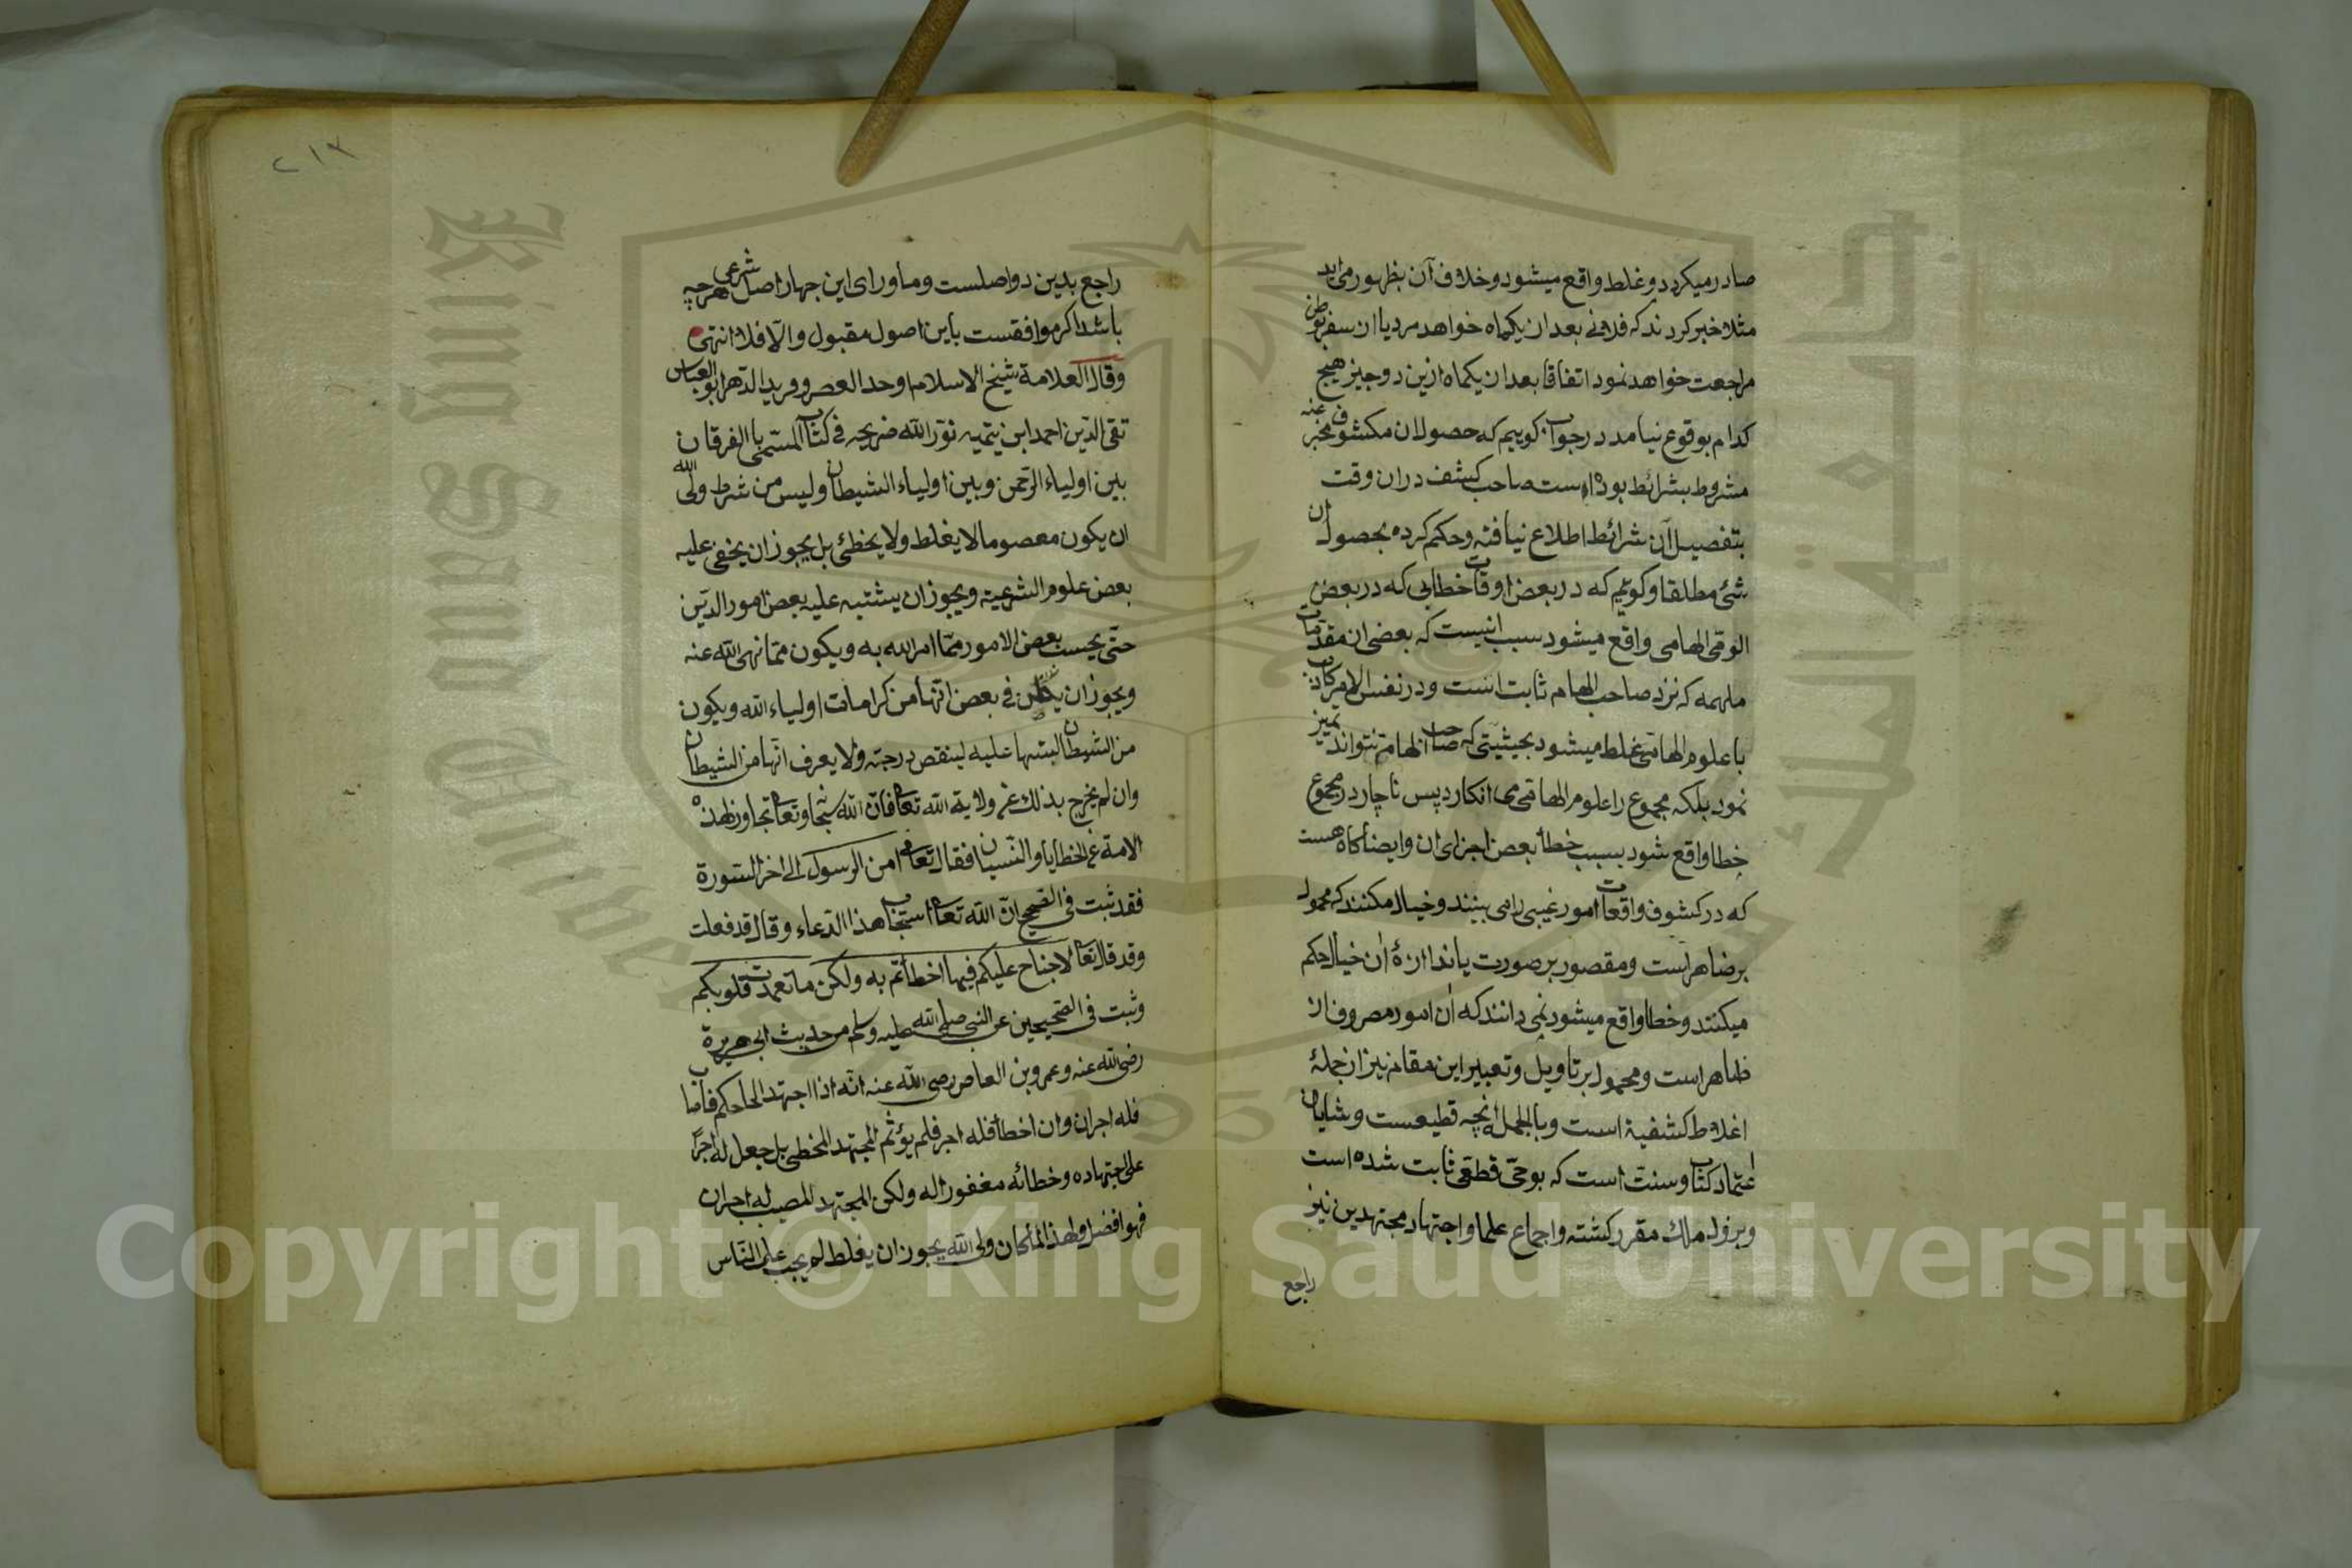 صادر میکردد و غلط واقع میشود و خلاف آن بظهور می اید
مثلا خبر کردند که فلانی بعد از یکماه خواهد مرد یا از سفر بوطن
مراجعت خواهد نمود اتفاقا بعد از یکماه ازین دو چیز هیچ
کدام بوقوع نیامد در جواب کوییم که حصول ان مکشوف مخبر عنه
مشروط بشرائط بوده است صاحب کشف دران وقت
بتفصیل آن شرائط اطلاع نیافته و حکم کرده بحصول ان
شئ مطلقا و کوئیم که در بعض اوقات خطایی که در بعض
الوقی الهامی واقع میشود سبب انیست که بعضی از مقدمات
ملهمه که نزد صاحب الهام ثابت است و در نفس الامر کاذب
با علوم الهامی غلط میشود بحیثیتی که صاحب الهام تمیز نتواند
نمود بلکه مجموع را علوم الهامی می انکارد پس ناچار در مجموع
خطا واقع شود بسبب خطأ بعض اجزای ان وایضا کاه هست
که در کشوف واقعات امور غیبی را می بینند و خیال مکنند که محمول
بر ضاهراست و مقصور بر صورت یاندازۀ ان خیال حکم
میکنند و خطا واقع میشود نمی دانند که ان امور مصروف از
ظاهراست و محمول بر تاویل و تعبیر این مقام نیز از جملۀ
اغلاط کشفیة است و بالجمله انچه قطیعست و شایان
اعتماد کتاب و سنت است که بوحی قطعی ثابت شده است
و بزول ملك مقرر کشته و اجماع علما و اجتهاد مجتهدین نیز
راجع
٢١٣
راجع بدین دو اصلست و ماورای این جهار اصل شرعی هرچه
باشد اکر موافقست باین اصول مقبول والّا فلا انتهی
وقال العلامة شیخ الاسلام اوحد العصر وفرید الدّهر ابو العباس
تقی الدّین احمد ابن تیمیه نوّر الله ضریحه فی کتاب المسمّی با الفرقان
بین اولیاء الرّحمن وبین اولیاء الشیطان ولیس من شرط ولی الله
ان یکون معصوما لا یغلط ولا یخطئ بل یجوز ان یخفی علیه
بعض علوم الشرعیة ویجوز ان یشتبه علیه بعض امور الدّین
حتّی یحسب بعض الامور ممّا امر الله به ویکون ممّا نهی الله عنه
ویجوز ان یظن فی بعض انّها من کرامات اولیاء الله ویکون
من الشیطان لبتسها علیه لینقص درجته ولا یعرف انّها من الشیطان
وان لم یخرج بذلك عن ولایة الله تعالی فانّ الله سبحانه وتعالی تجاوز لهذه
الامة عن الخطایا والنّسیان فقال تعالی امن الرسول الی اخر السّورة
فقد ثبت فی الصّحیح انّ الله تعالی استجاب هذا الدّعاء وقال قد فعلت
وقد قال تعالی لا جناح علیکم فیما اخطأتم به ولکن ما تعمدت قلوبکم
وثبت فی الصّحیحین عن النبی صلی الله علیه وسلم من حدیث ابی هریرة
رضی الله عنه وعمرو بن العاص رضی الله عنه انّه اذا اجتهد الحاکم فاصاب
فله اجران وان اخطأ فله اجر فلم یؤثم المجتهد المخطی بل جعل له اجرًا
علی اجتهاده وخطائه مغفورا له ولکن المجتهد المصیب له اجران
فهو افضل ولهذا لمّا کان ولی الله یجوز ان یغلط لم یجب علی النّاس
Copyright © King Saud University
King Saud University
جامعة الملك سعود
1957